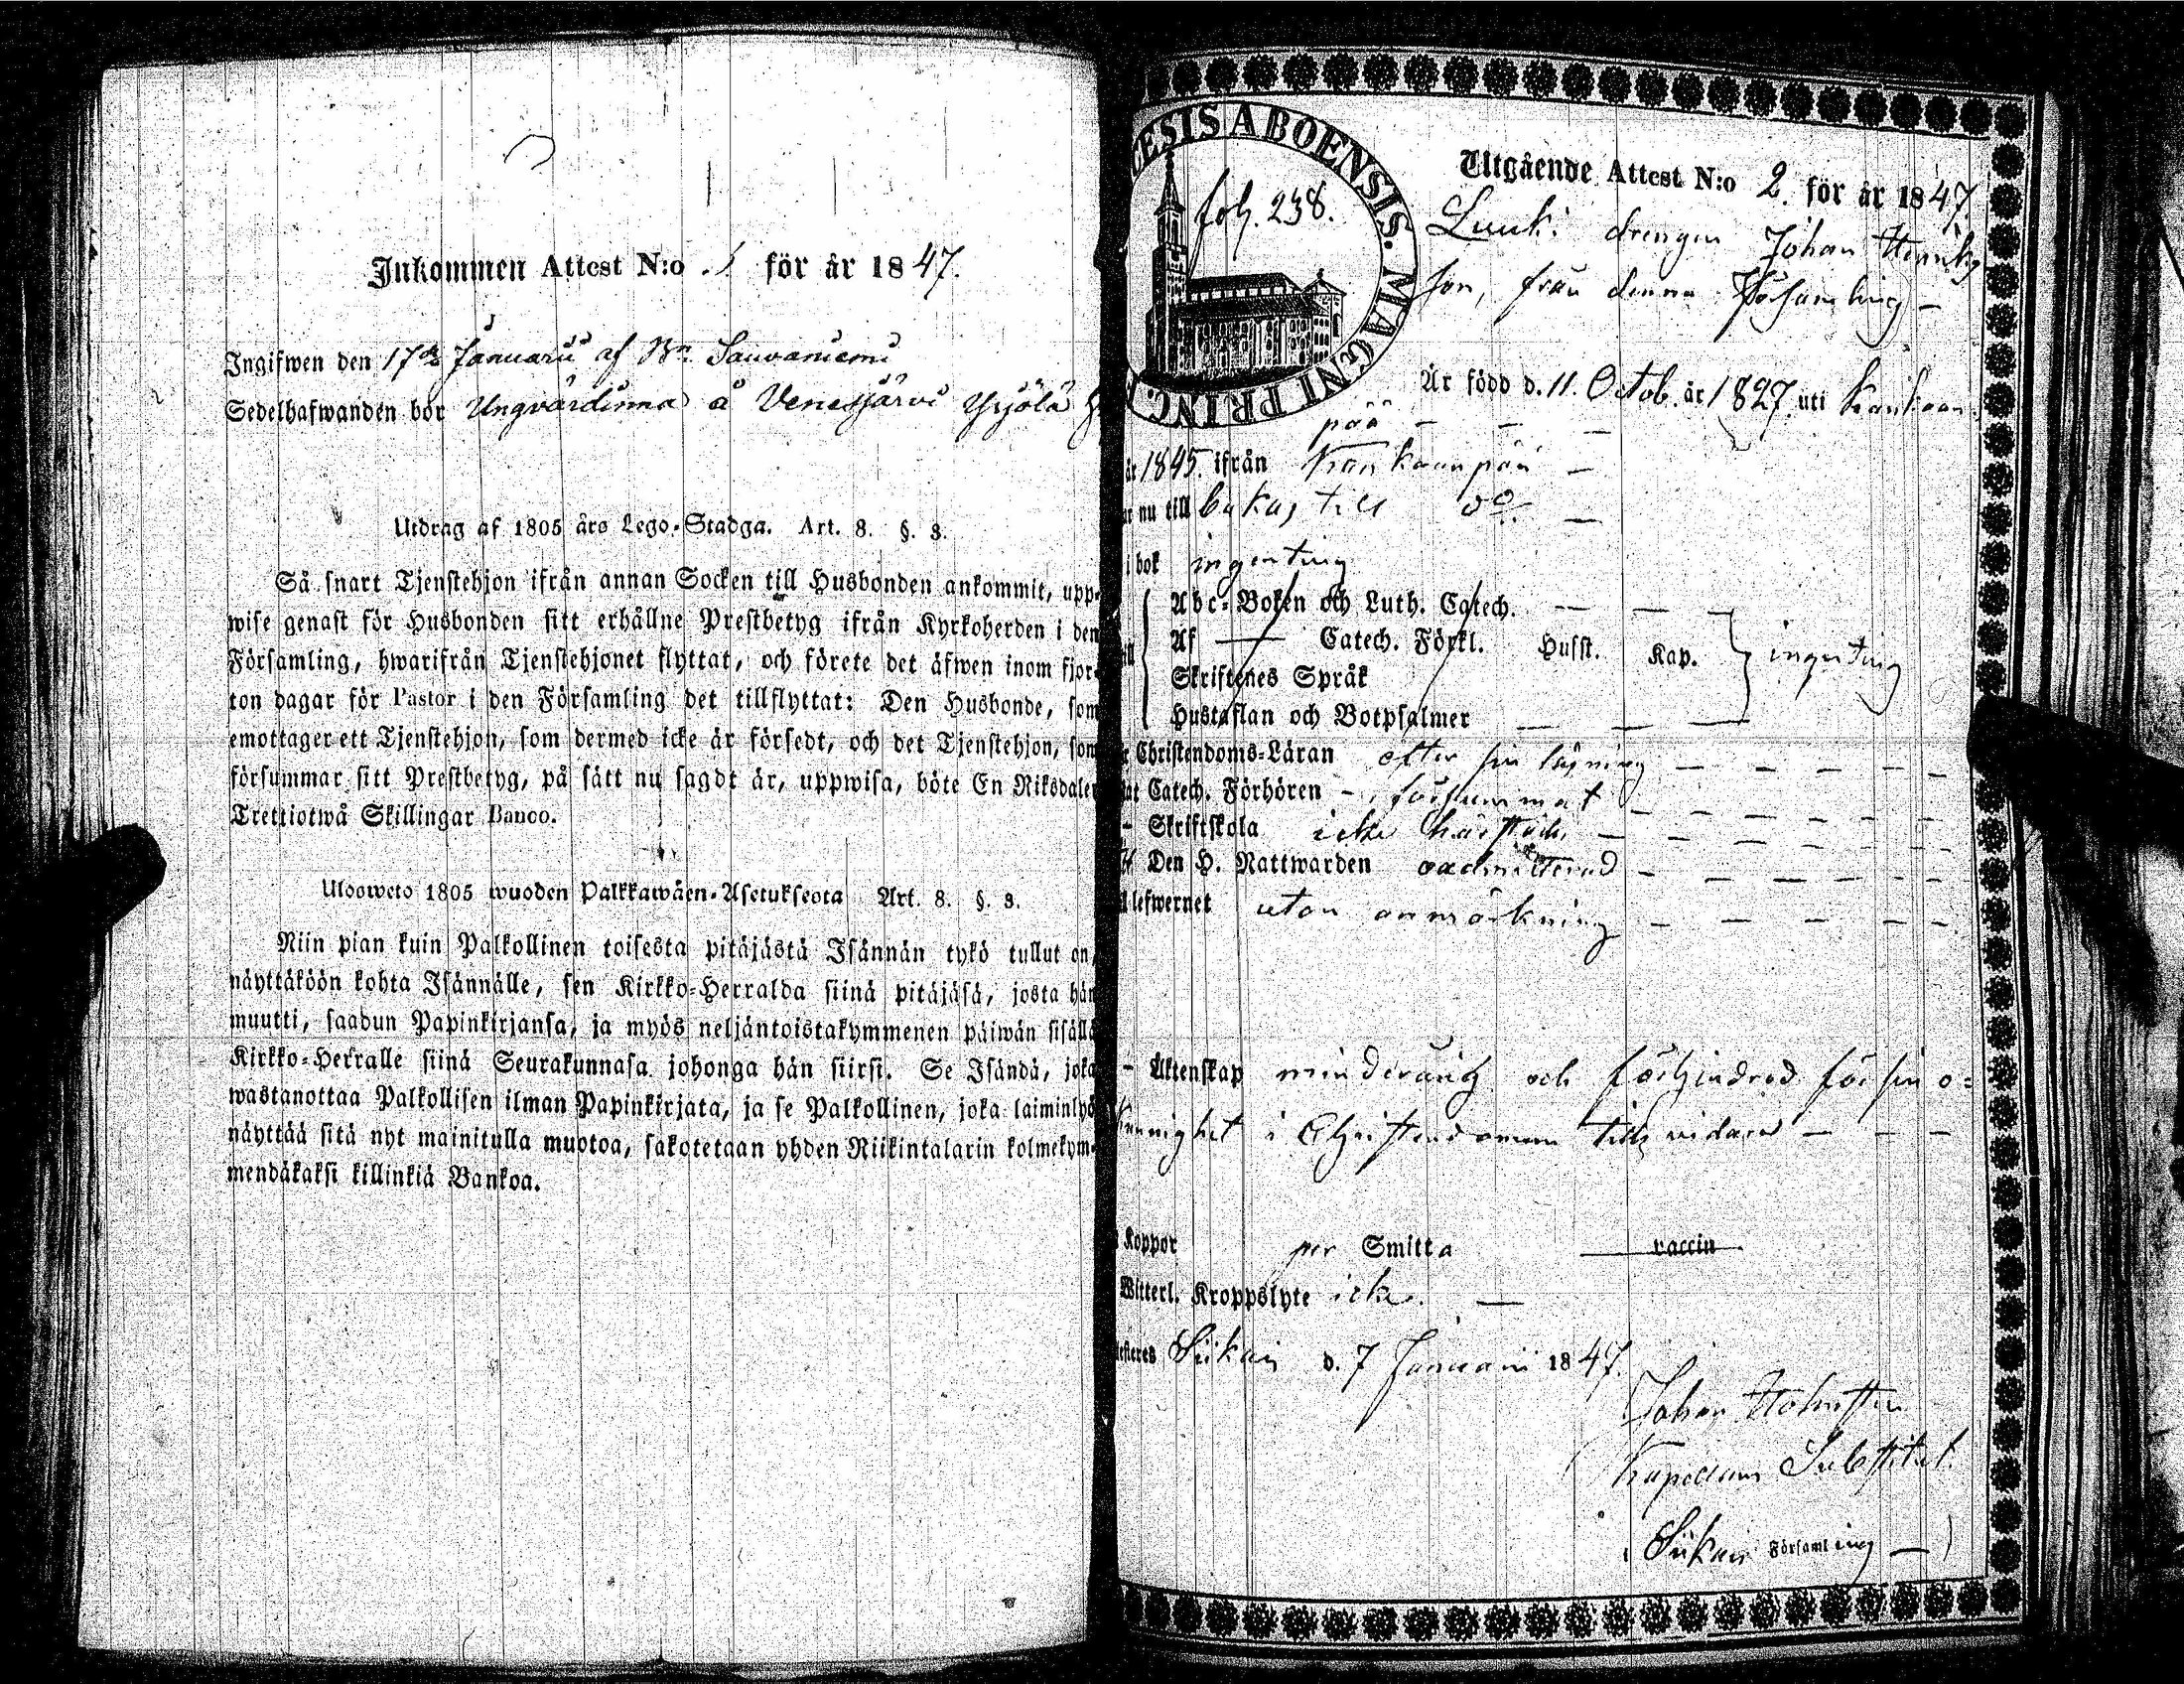 Inkommen Attest N:o 1 för år 1847.
Ingifwen den 17de Januarii af Bn. Sauvaniemi
Sedelhafwanden bor Ungvärdinna å Venesjärvi Yrjölä
Utdrag af 1805 års Lego-Stadga. Art. 8. §. 3.
Så snart Tjenstehjon ifrån annan Socken till Husbonden ankommit, upp-
wise genast för Husbonden sitt erhållne Prestbetyg ifrån Kyrkoherden i den
Församling, hwarifrån Tjenstehjonet flyttat, och förete det äfwen inom fjor-
ton dagar för Pastor i den Församling det tillflyttat: Den Husbonde, som
emottager ett Tjenstehjon, som dermed icke är försedt, och det Tjenstehjon, som
försummar sitt Prestbetyg, på sätt nu sagdt är, uppwisa, böte En Riksdaler
Trettiotwå Skillingar Banco.
Ulosweto 1805 wuoden Palkkawäen-Asetuksesta Art. 8. §. 3.
Niin pian kuin Palkollinen toisesta pitäjästä Isännän tykö tullut on,
näyttäköön kohta Isännälle, sen Kirkko-Herralda siinä pitäjäsä, josta hän
muutti, saadun Papinkirjansa, ja myös neljäntoistakymmenen päiwän sisällä
Kirkko-Herralle siinä Seurakunnasa johonga hän siirsi. Se Isändä, joka
wastanottaa Palkollisen ilman Papinkirjata, ja se Palkollinen, joka laiminlyö
näyttää sitä nyt mainitulla muotoa, sakotetaan yhden Riikintalarin kolmekym-
mendäkaksi killinkiä Bankoa.
ESIS ABOENSIS. MAGNI PRINC.
fol. 238.
Utgående Attest N:o 2. för år 1847.
drengen Johan Henriks
son, från denna Församling -
Är född d. 11. Octob. år 1827. uti Kankaan
pää - - -
år 1845. ifrån Kankaanpää -
nu till bakas till do -
i bok ingenting
Abc-Boken och Luth. Catech. - - -
Af - Catech. Förkl. Husst. Kap. ingenting
Skriftenes Språk
Hustaflan och Botpsalmer - - -
Christendoms-Läran efter sin läsning - - - - -
Catech. Förhören - försummat - - - - -
- Skriftskola icke - - - - -
Den H. Nattwarden oadmitterad - - - - -
lefwernet utan anmärkning - - - - -
- Äktenskap minderårig och förhindrad för sin o=
kunnighet i Christendomen tills vidare - - -
Koppor per Smitta vaccin
Witterl. Kroppslyte icke. -
Siikais d. 7 Januarii 1847.
Johan Holmsten
Kapellans Substitut.
i Siikais Församling -